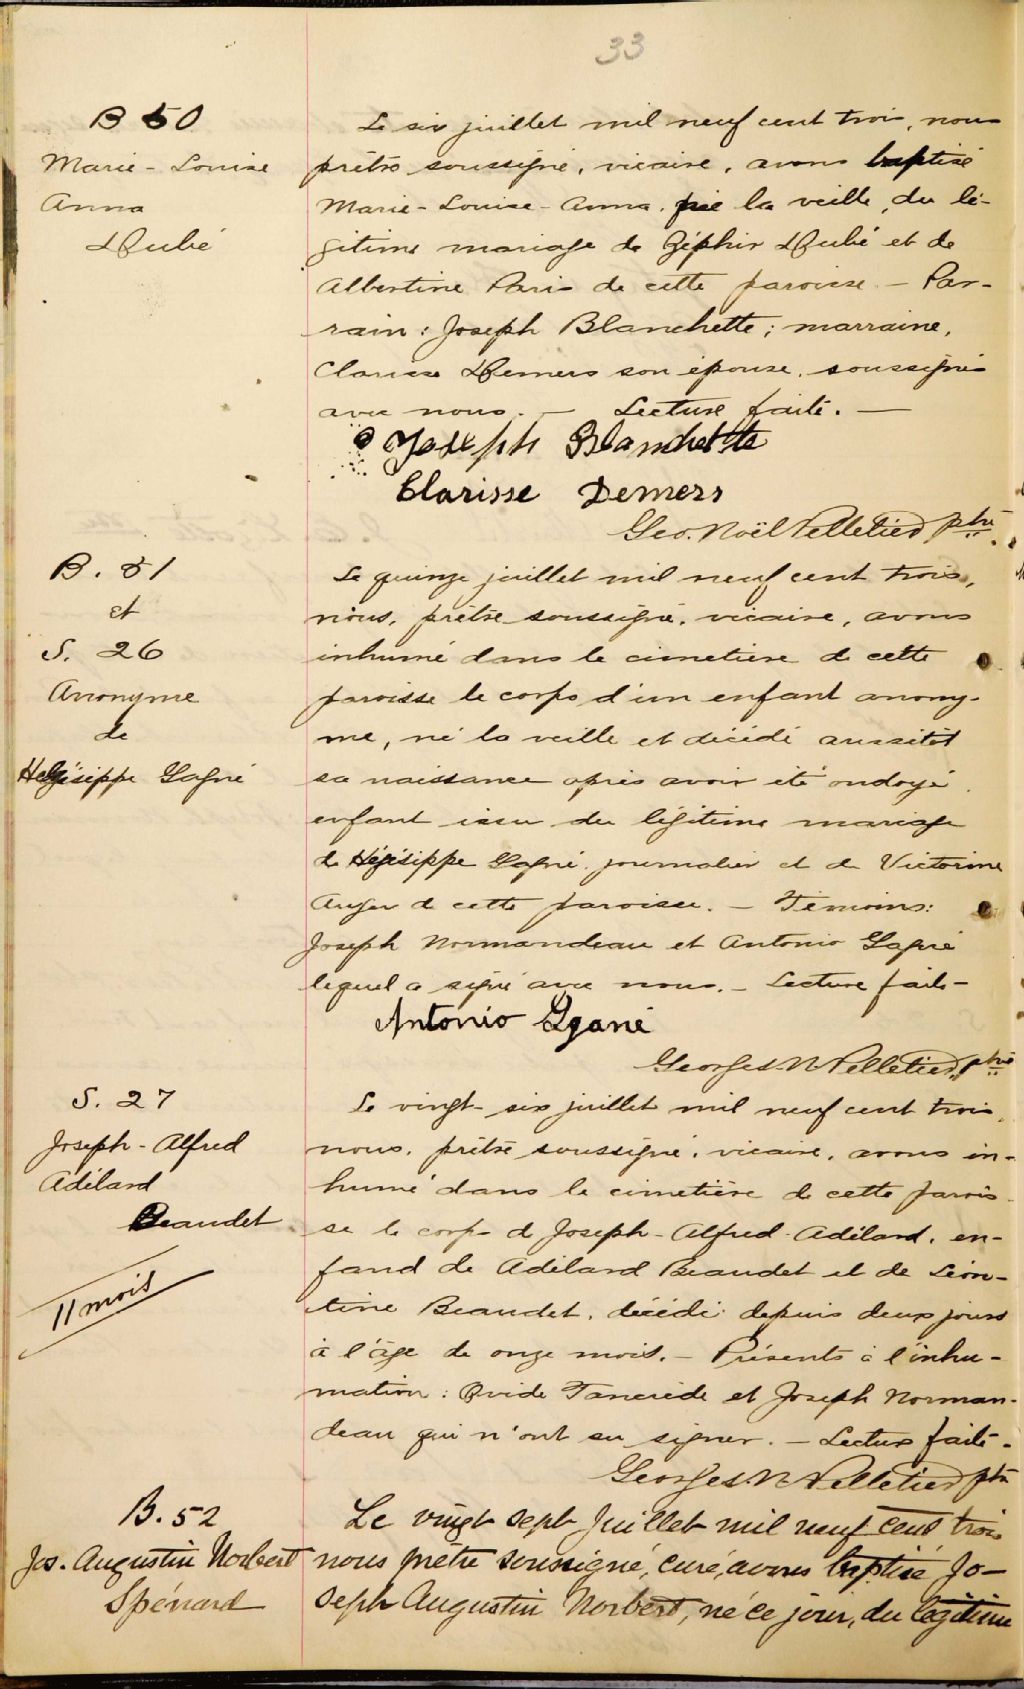 33
B 50
Marie-Louise
Anna
Dubé
Le six juillet mil neuf cent trois, nous
prêtre soussigné, vicaire, avons baptisé
Marie-Louise-Anna, née la veille, du lé-
gitime mariage de Zéphir Dubé et de
Albertine Paris de cette paroisse - Par-
rain: Joseph Blanchette; marraine,
Clarisse Demers son épouse, soussignés
avec nous. — Lecture faite. —
Joseph Blanchette
Clarisse Demers
Geo. Noël Pelletier, ptre
B. 51
et
S. 26
Anonyme
de
Hégésippe Gagné
Le quinze juillet mil neuf cent trois,
nous, prêtre soussigné, vicaire, avons
inhumé dans le cimetière de cette
paroisse le corps d'un enfant anony-
me, né la veille et décédé aussitôt
sa naissance après avoir été ondoyé,
enfant issu du légitime mariage
de Hégésippe Gagné, journalier et de Victorine
Auger de cette paroisse. - Témoins:
Joseph Normandeau et Antonio Gagné
lequel a signé avec nous. - Lecture faite -
Antonio Ggané
Georges N Pelletier, ptre
S. 27
Joseph-Alfred
Adélard
Beaudet
11 mois
Le vingt-six juillet mil neuf cent trois,
nous, prêtre soussigné, vicaire, avons in-
humé dans le cimetière de cette parois-
se le corps de Joseph-Alfred-Adélard, en-
fand de Adélard Beaudet et de Léon-
tine Beaudet, décédé depuis deux jours
à l'âge de onze mois. - Présents à l'inhu-
mation: Ovide Tancrède et Joseph Norman-
deau qui n'ont su signer. - Lecture faite -
Georges N Pelletier ptre
B. 52
Jos. Augustin Norbert
Spénard
Le vingt sept Juillet mil neuf cent trois
nous prêtre soussigné, curé, avons baptisé Jo-
seph Augustin Norbert, né ce jour, du légitime